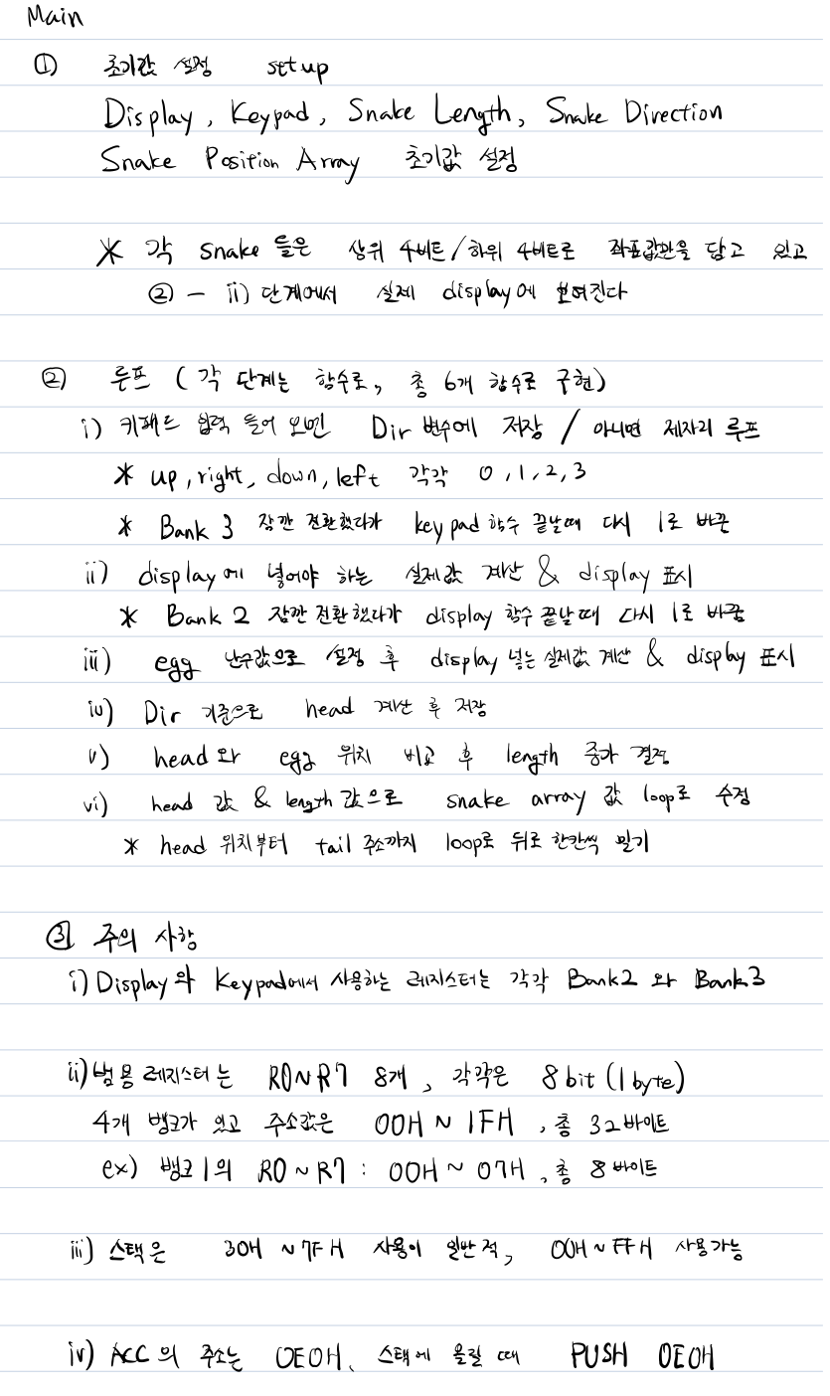 Main
① 초기값 설정 setup
Display, Keypad, Snake Length, Snake Direction
Snake Position Array 초기값 설정
* 각 snake 들은 상위 4비트/하위 4비트로 좌표값만을 담고 있고
② - ii) 단계에서 실제 display에 보여진다
② 루프 (각 단계는 함수로, 총 6개 함수로 구현)
i) 키패드 입력 들어 오면 Dir 변수에 저장 / 아니면 제자리 루프
* up, right, down, left 각각 0, 1, 2, 3
* Bank 3 잠깐 전환했다가 key pad 함수 끝날때 다시 1로 바꿈
ii) display에 넣어야 하는 실제값 계산 & display 표시
* Bank 2 잠깐 전환했다가 display 함수 끝날때 다시 1로 바꿈
iii) egg 난수값으로 설정 후 display 넣는 실제값 계산 & display 표시
iv) Dir 기준으로 head 계산 후 저장
v) head 와 egg 위치 비교 후 length 증가 결정
vi) head 값 & length 값으로 snake array 값 loop로 수정
* head 위치부터 tail 주소까지 loop로 뒤로 한칸씩 밀기
③ 주의 사항
i) Display 와 Keypad에서 사용하는 레지스터는 각각 Bank2 와 Bank3
ii) 범용 레지스터는 R0~R7 8개, 각각은 8 bit (1 byte)
4개 뱅크가 있고 주소값은 00H ~ 1FH, 총 32바이트
ex) 뱅크 1의 R0 ~ R7 : 00H ~ 07H, 총 8 바이트
iii) 스택은 30H ~ 7F H 사용이 일반적, 00H ~ FF H 사용가능
iv) ACC 의 주소는 0E0H, 스택에 올릴 때 PUSH 0E0H